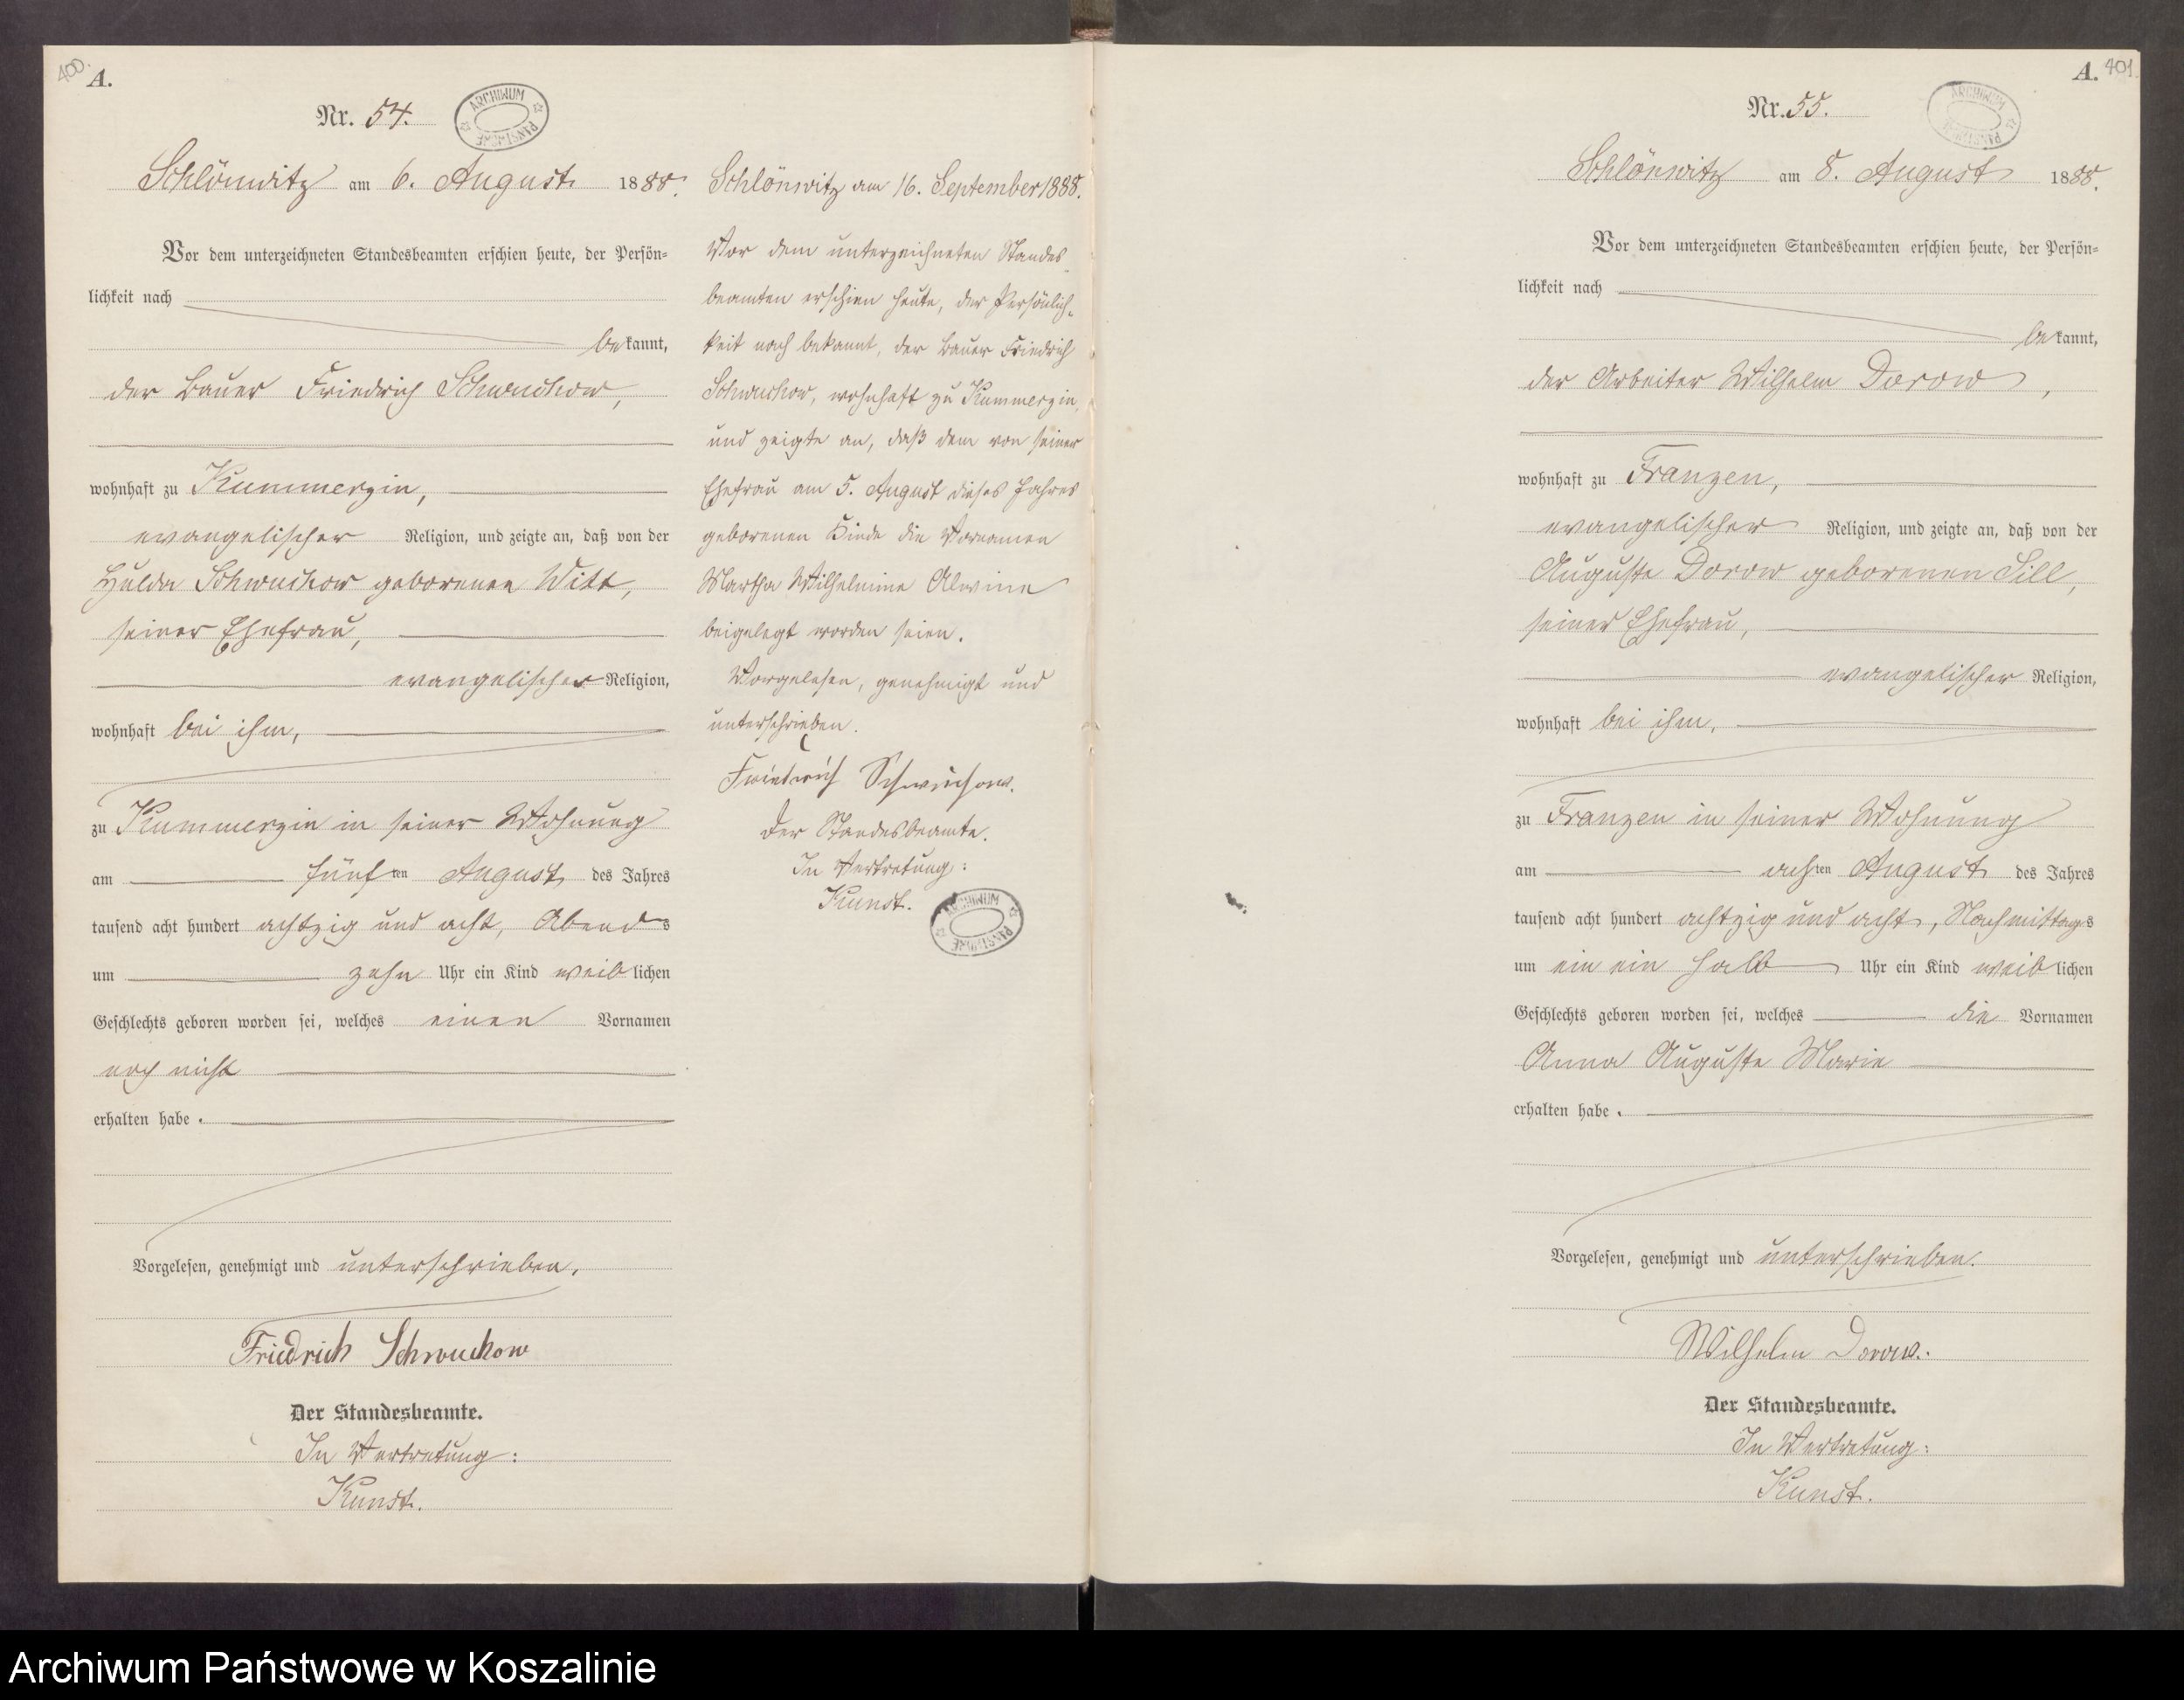 400.
A.
Nr. 54.
ARCHIWUM PAŃSTWOWE
Schlönwitz am 6. August 1888.
Vor dem unterzeichneten Standesbeamten erschien heute, der Persön=
lichkeit nach
bekannt,
der Bauer Friedrich Schwuchow,
wohnhaft zu Kummerzin,
evangelischer Religion, und zeigte an, daß von der
Hulda Schwuchow geborenen Witt,
seiner Ehefrau,
evangelischer Religion,
wohnhaft bei ihm,
zu Kummerzin in seiner Wohnung
am fünften August des Jahres
tausend acht hundert achtzig und acht, Abends
um zehn Uhr ein Kind weiblichen
Geschlechts geboren worden sei, welches einen Vornamen
noch nicht
erhalten habe.
Vorgelesen, genehmigt und unterschrieben.
Friedrich Schwuchow
Der Standesbeamte.
In Vertretung:
Kunst.
Schlönwitz am 16. September 1888.
Vor dem unterzeichneten Standes
beamten erschien heute, der Persönlich=
keit nach bekannt, der Bauer Friedrich
Schwuchow, wohnhaft zu Kummerzin,
und zeigte an, daß dem von seiner
Ehefrau am 5. August dieses Jahres
geborenen Kinde die Vornamen
Martha Wilhelmine Alwine
beigelegt worden seien.
Vorgelesen, genehmigt und
unterschrieben.
Friedrich Schwuchow.
Der Standesbeamte.
In Vertretung:
Kunst.
ARCHIWUM PAŃSTWOWE
A. 401.
Nr. 55.
ARCHIWUM PAŃSTWOWE
Schlönwitz am 8. August 1888.
Vor dem unterzeichneten Standesbeamten erschien heute, der Persön=
lichkeit nach
bekannt,
der Arbeiter Wilhelm Dorow,
wohnhaft zu Franzen,
evangelischer Religion, und zeigte an, daß von der
Auguste Dorow geborenen Sill,
seiner Ehefrau,
evangelischer Religion,
wohnhaft bei ihm,
zu Franzen in seiner Wohnung
am achten August des Jahres
tausend acht hundert achtzig und acht, Nachmittags
um ein ein halb Uhr ein Kind weiblichen
Geschlechts geboren worden sei, welches die Vornamen
Anna Auguste Marie
erhalten habe.
Vorgelesen, genehmigt und unterschrieben.
Wilhelm Dorow.
Der Standesbeamte.
In Vertretung:
Kunst.
Archiwum Państwowe w Koszalinie